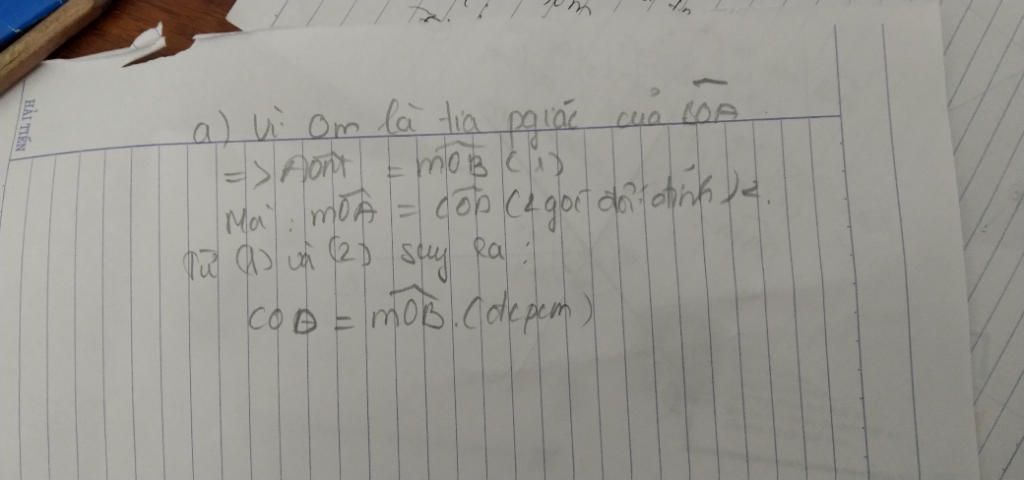 HẢI TIẾN
a) Vì Om là tia pgiác của BOA
=> AOm = mOB (1)
Mà : mOA = COD (2 góc đối đỉnh) 2.
Từ (1) và (2) suy ra :
COD = mOB. (đcpcm)